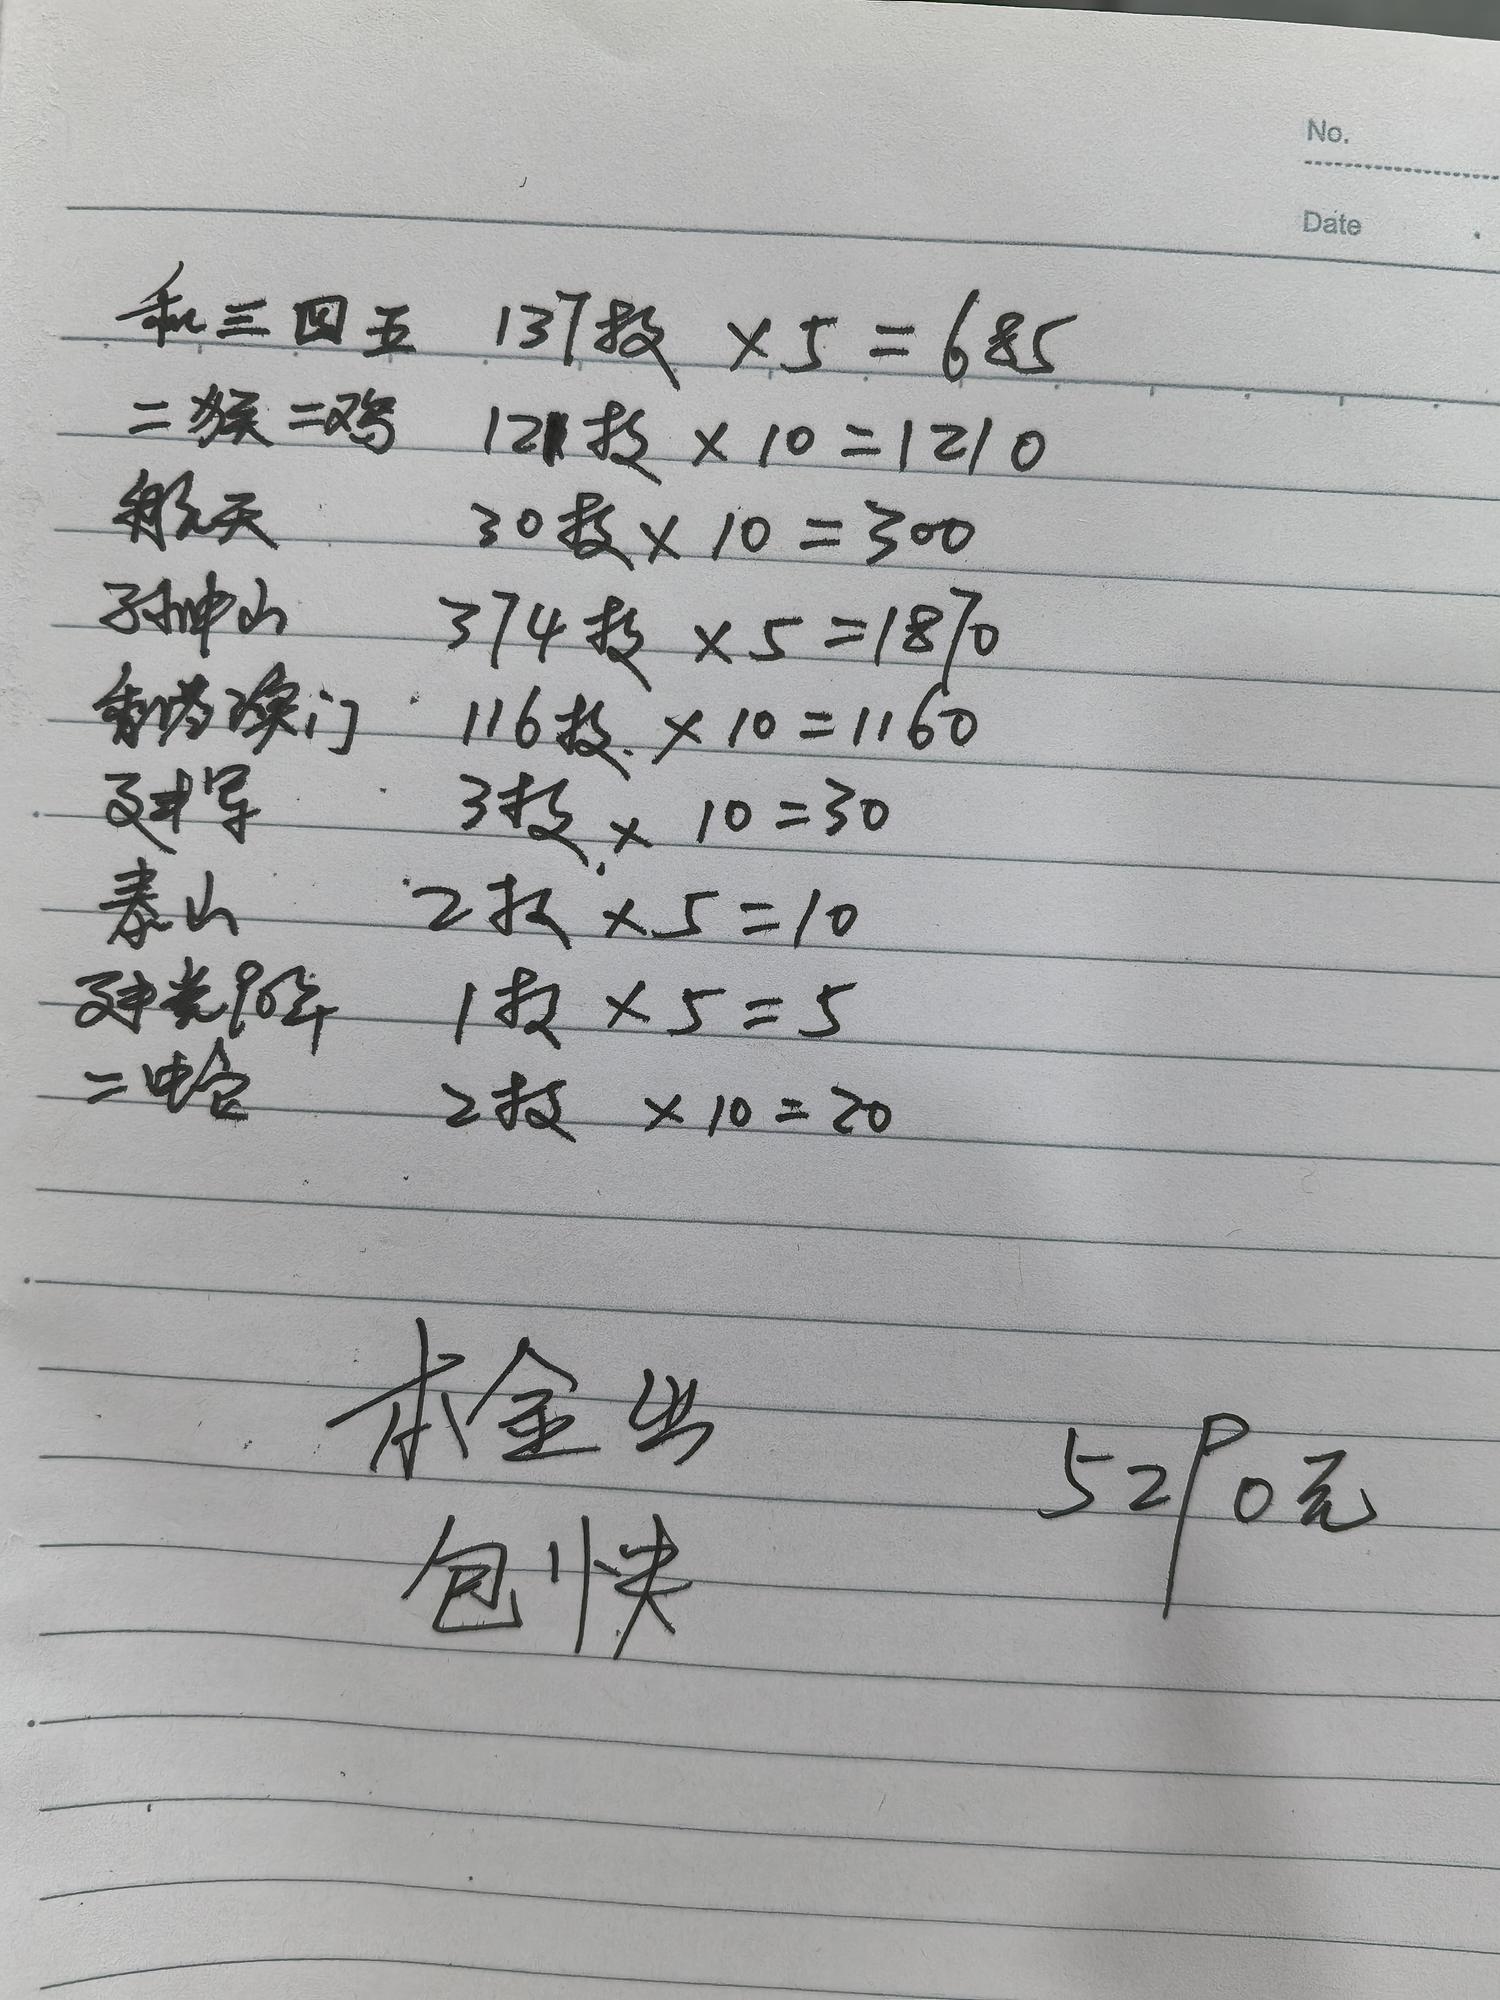 No.
Date
和三四五 137枚 × 5 = 685
二猴二鸡 121枚 × 10 = 1210
航天 30枚 × 10 = 300
孙中山 374枚 × 5 = 1870
香港澳门 116枚 × 10 = 1160
建军 3枚 × 10 = 30
泰山 2枚 × 5 = 10
建党90年 1枚 × 5 = 5
二 2枚 × 10 = 20
本金出
包快
5290元